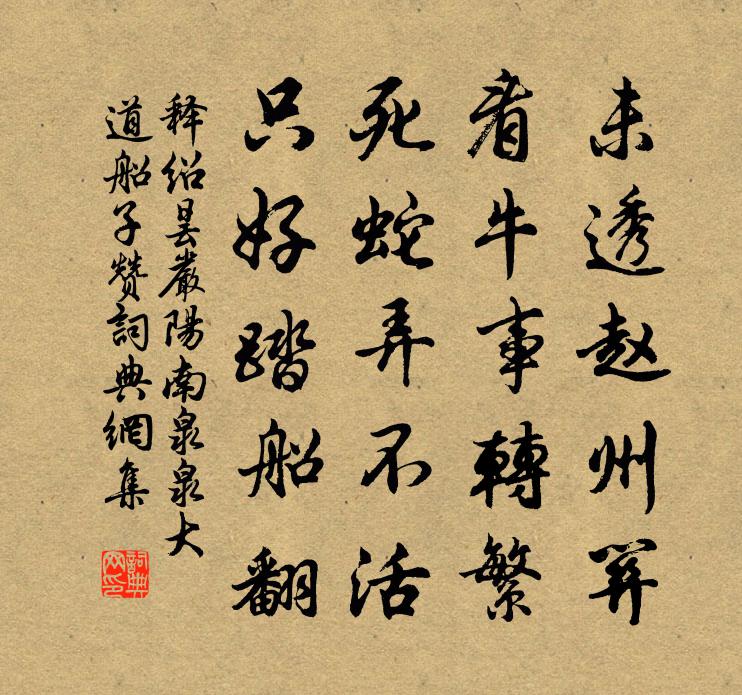 未透赵州关
看牛事轉繁
死蛇弄不活
只好踏船翻
释绍昙嚴陽南泉泉大
道船子赞詞典網集
詞典
网印